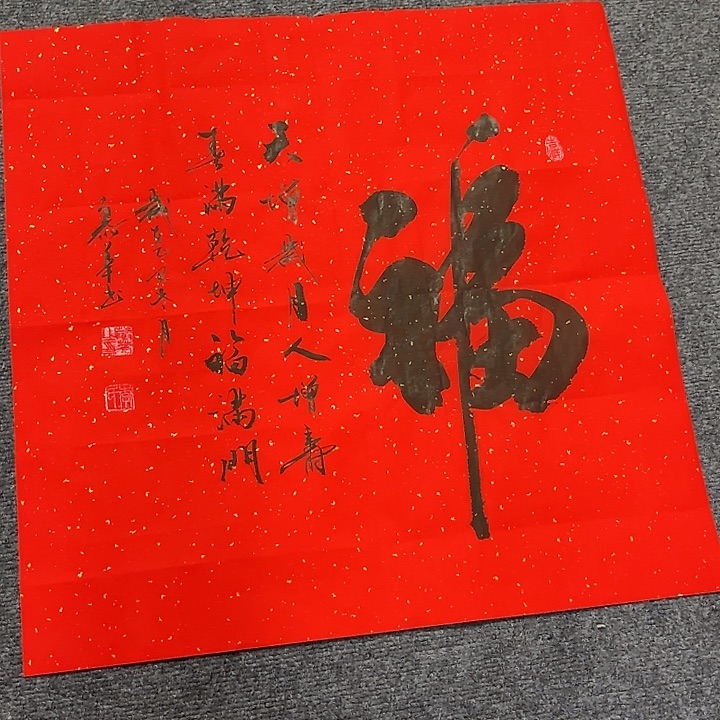 福
天增歲月人增壽
春滿乾坤福滿門
歲在冬月
華書